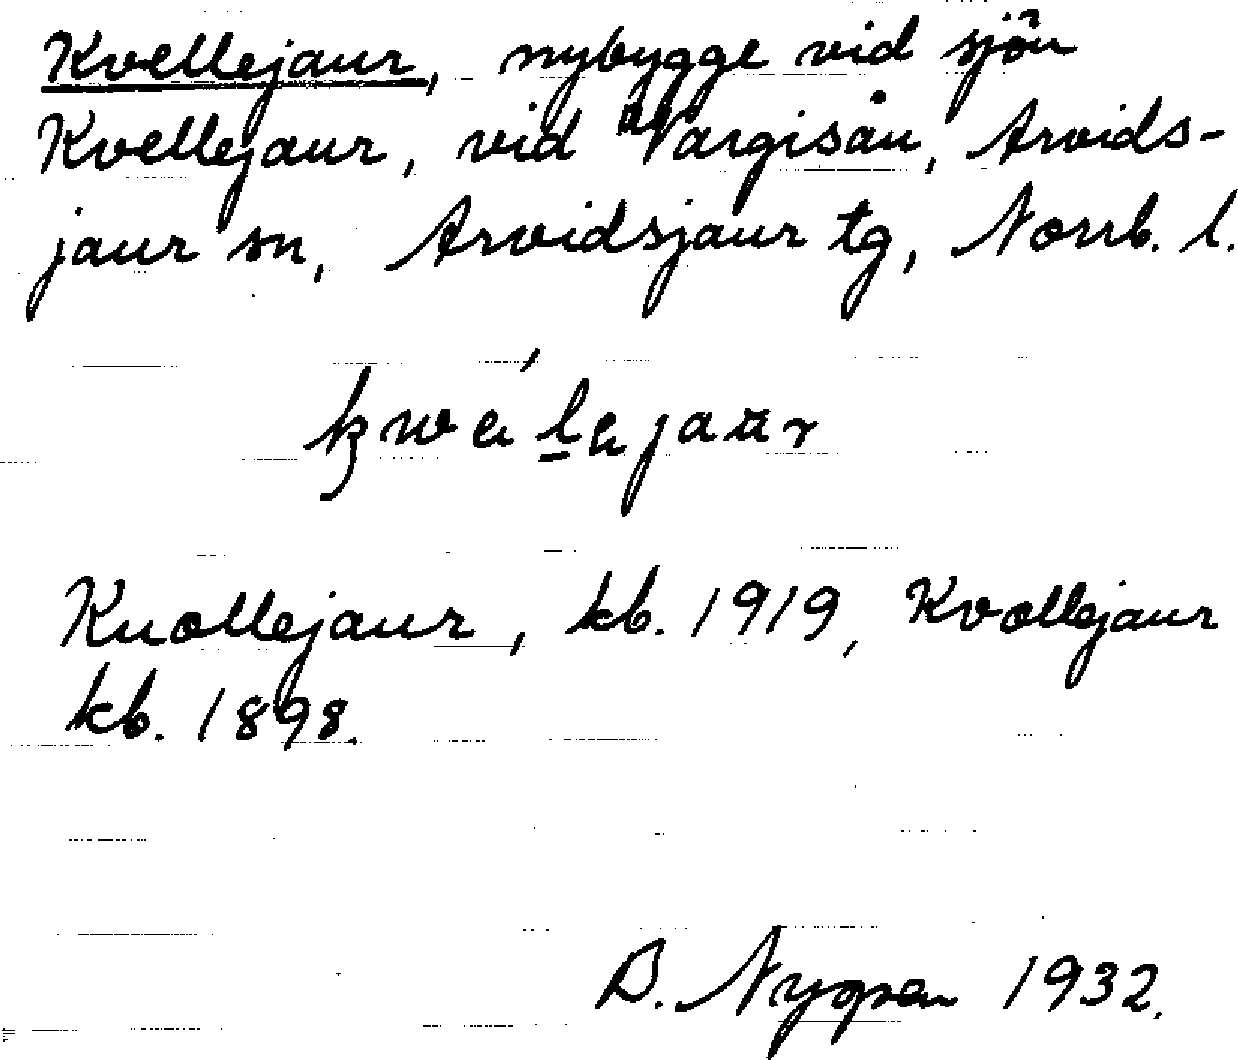 Kvellejaur, nybygge vid sjön
Kvellejaur, vid Vargisån, Arvids-
jaur sn, Arvidsjaur tg, Norrb. l.
Kuollejaur, kb. 1919, Kvollejaur
kb. 1898.
1932.